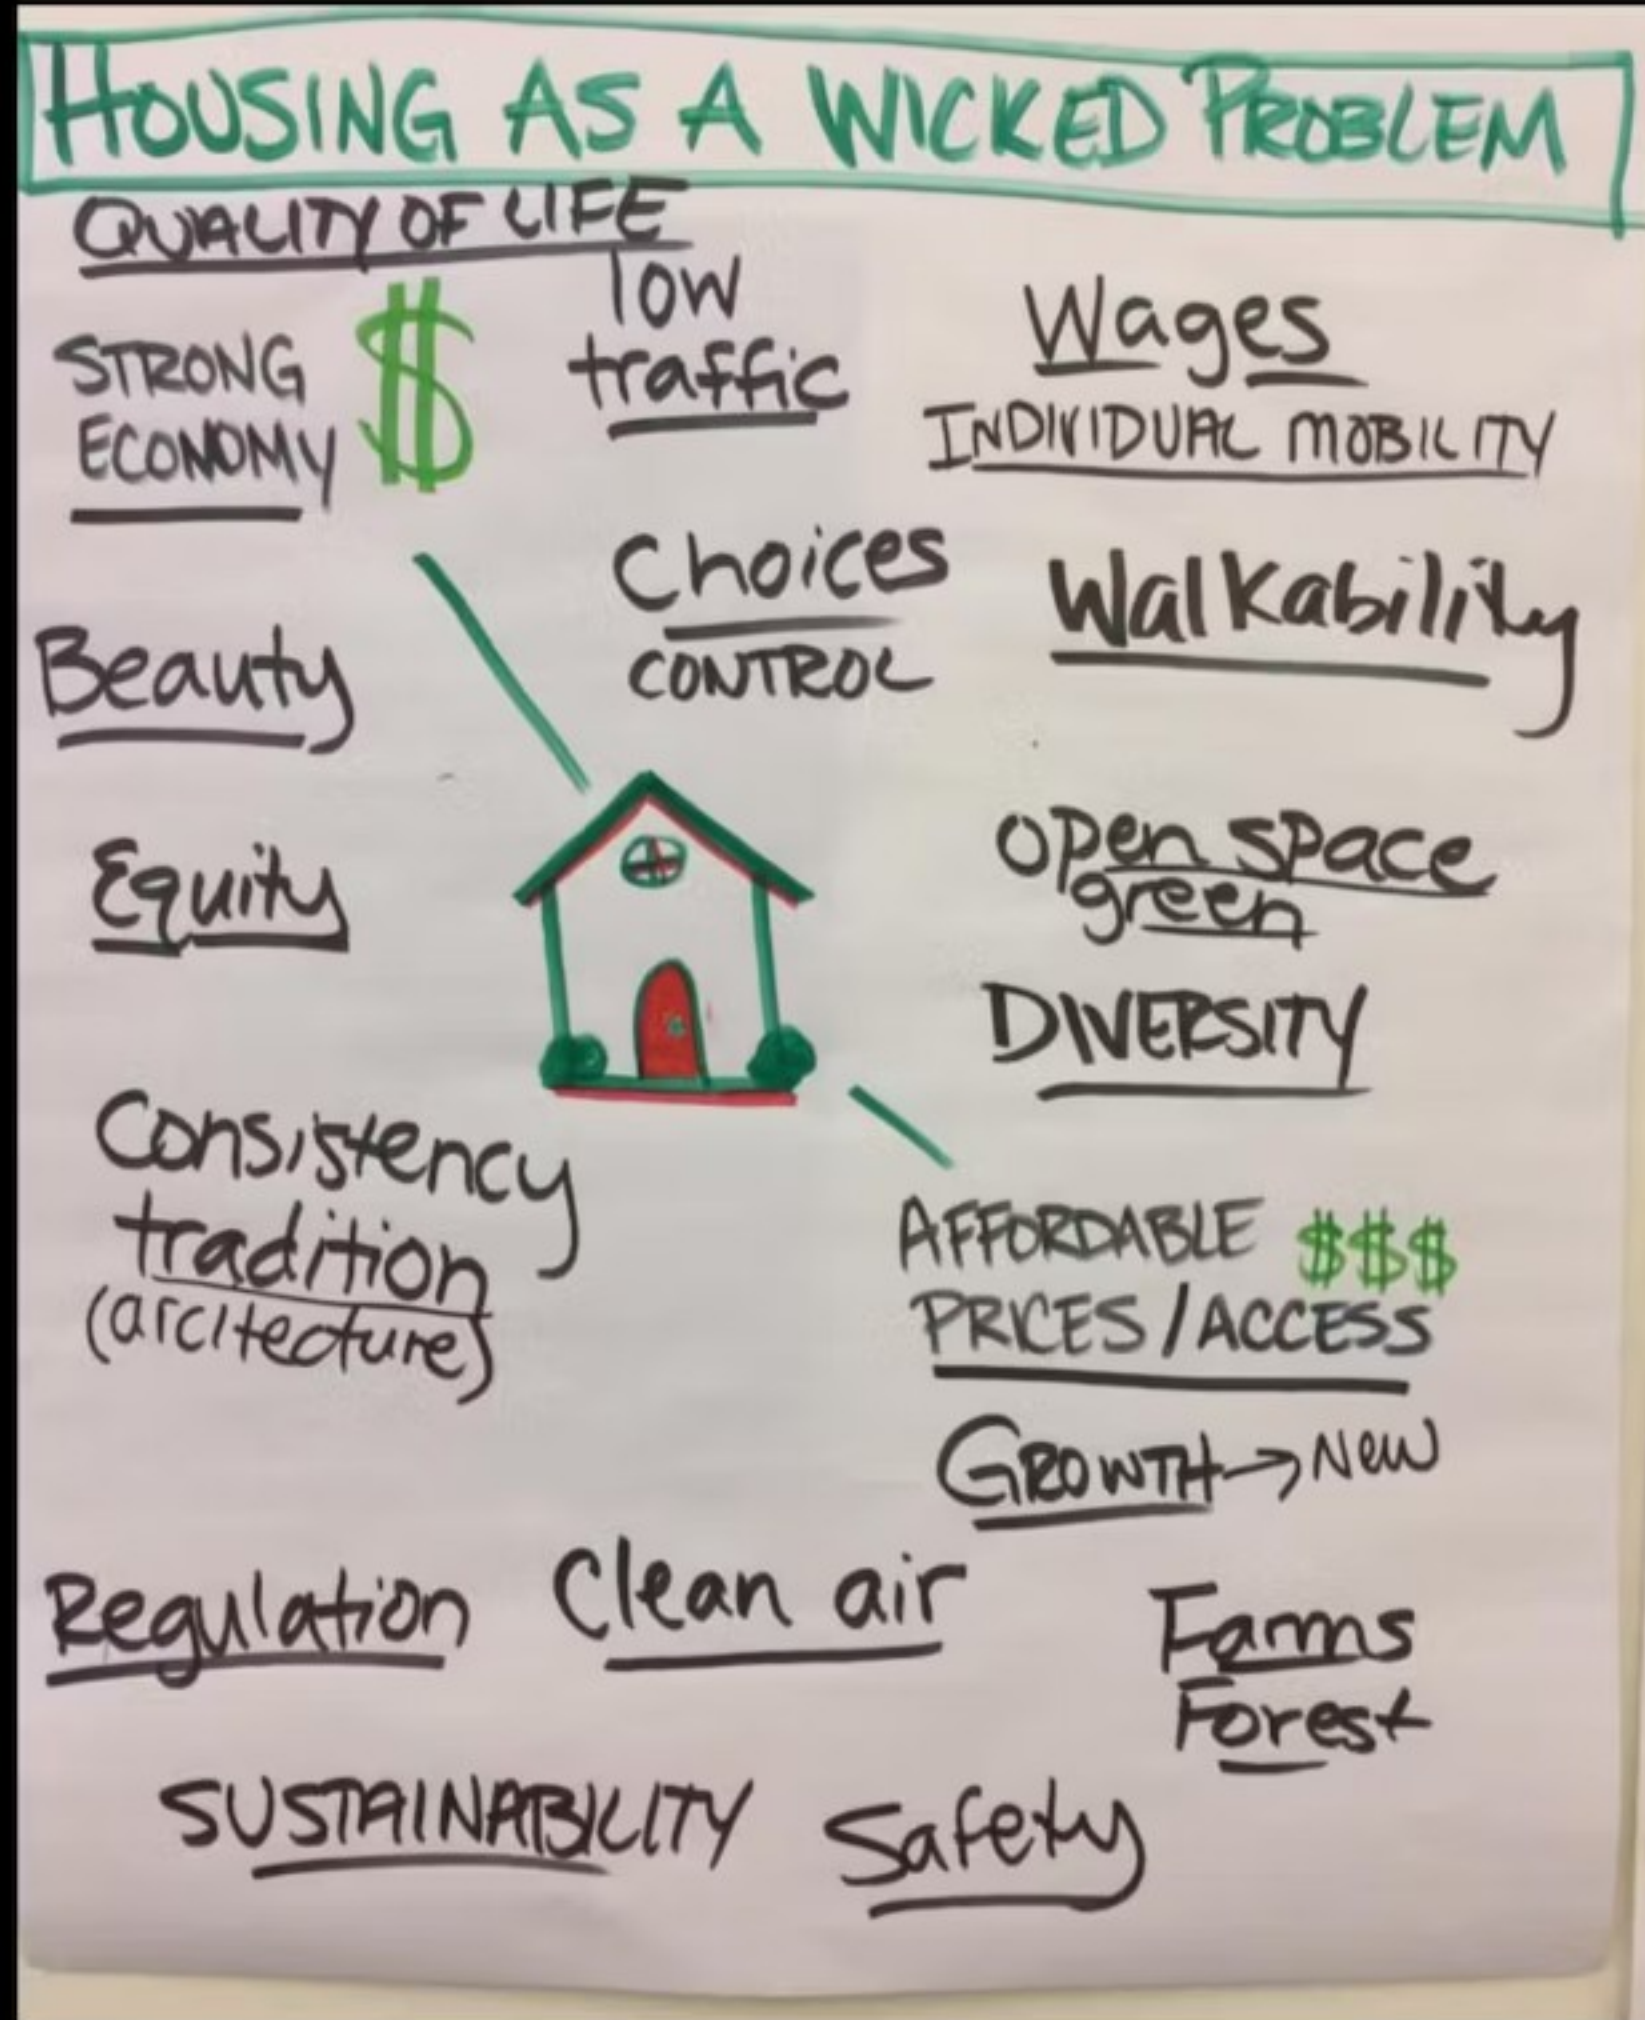 HOUSING AS A WICKED PROBLEM
QUALITY OF LIFE
STRONG
ECONOMY
$
low
traffic
Wages
INDIVIDUAL MOBILITY
Choices
CONTROL
Walkability
Beauty
Equity
open space
green
DIVERSITY
Consistency
tradition
(arcitecture)
AFFORDABLE $$$
PRICES/ACCESS
GROWTH→New
Regulation
Clean air
Farms
Forest
SUSTAINABILITY
Safety